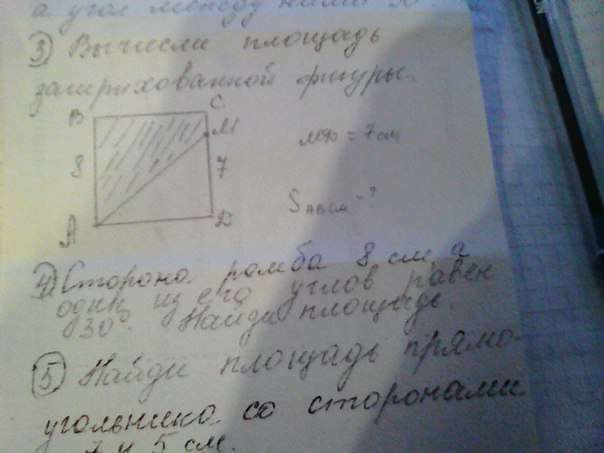 а угол между ними 30
③ Вычисли площадь
заштрихованной фигуры.
B C
M
8 7
A D
MD = 7 см
S ABCM - ?
④ Сторона ромба 8 см, а
один из его углов равен
30°. Найди площадь.
⑤ Найди площадь прямо-
угольника со сторонами
7 и 5 см.